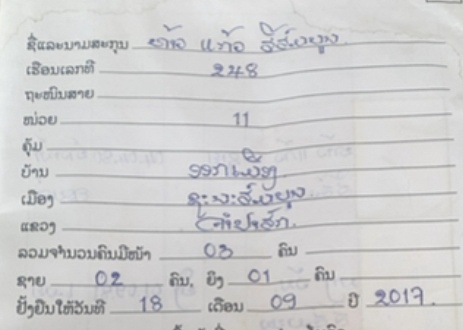 ຊື່ແລະນາມສະກຸນ ທ້າວ ແກ້ວ ສີສົມບູນ
ເຮືອນເລກທີ 248
ຖະໜົນສາຍ
ໜ່ວຍ 11
ຄຸ້ມ
ບ້ານ
ເມືອງ ຊະນະສົມບູນ
ແຂວງ ຈຳປາສັກ
ລວມຈຳນວນຄົນມີໜ້າ 03 ຄົນ
ຊາຍ 02 ຄົນ, ຍິງ 01 ຄົນ
ຢັ້ງຢືນໃຫ້ວັນທີ 18 ເດືອນ 09 ປີ 2017.